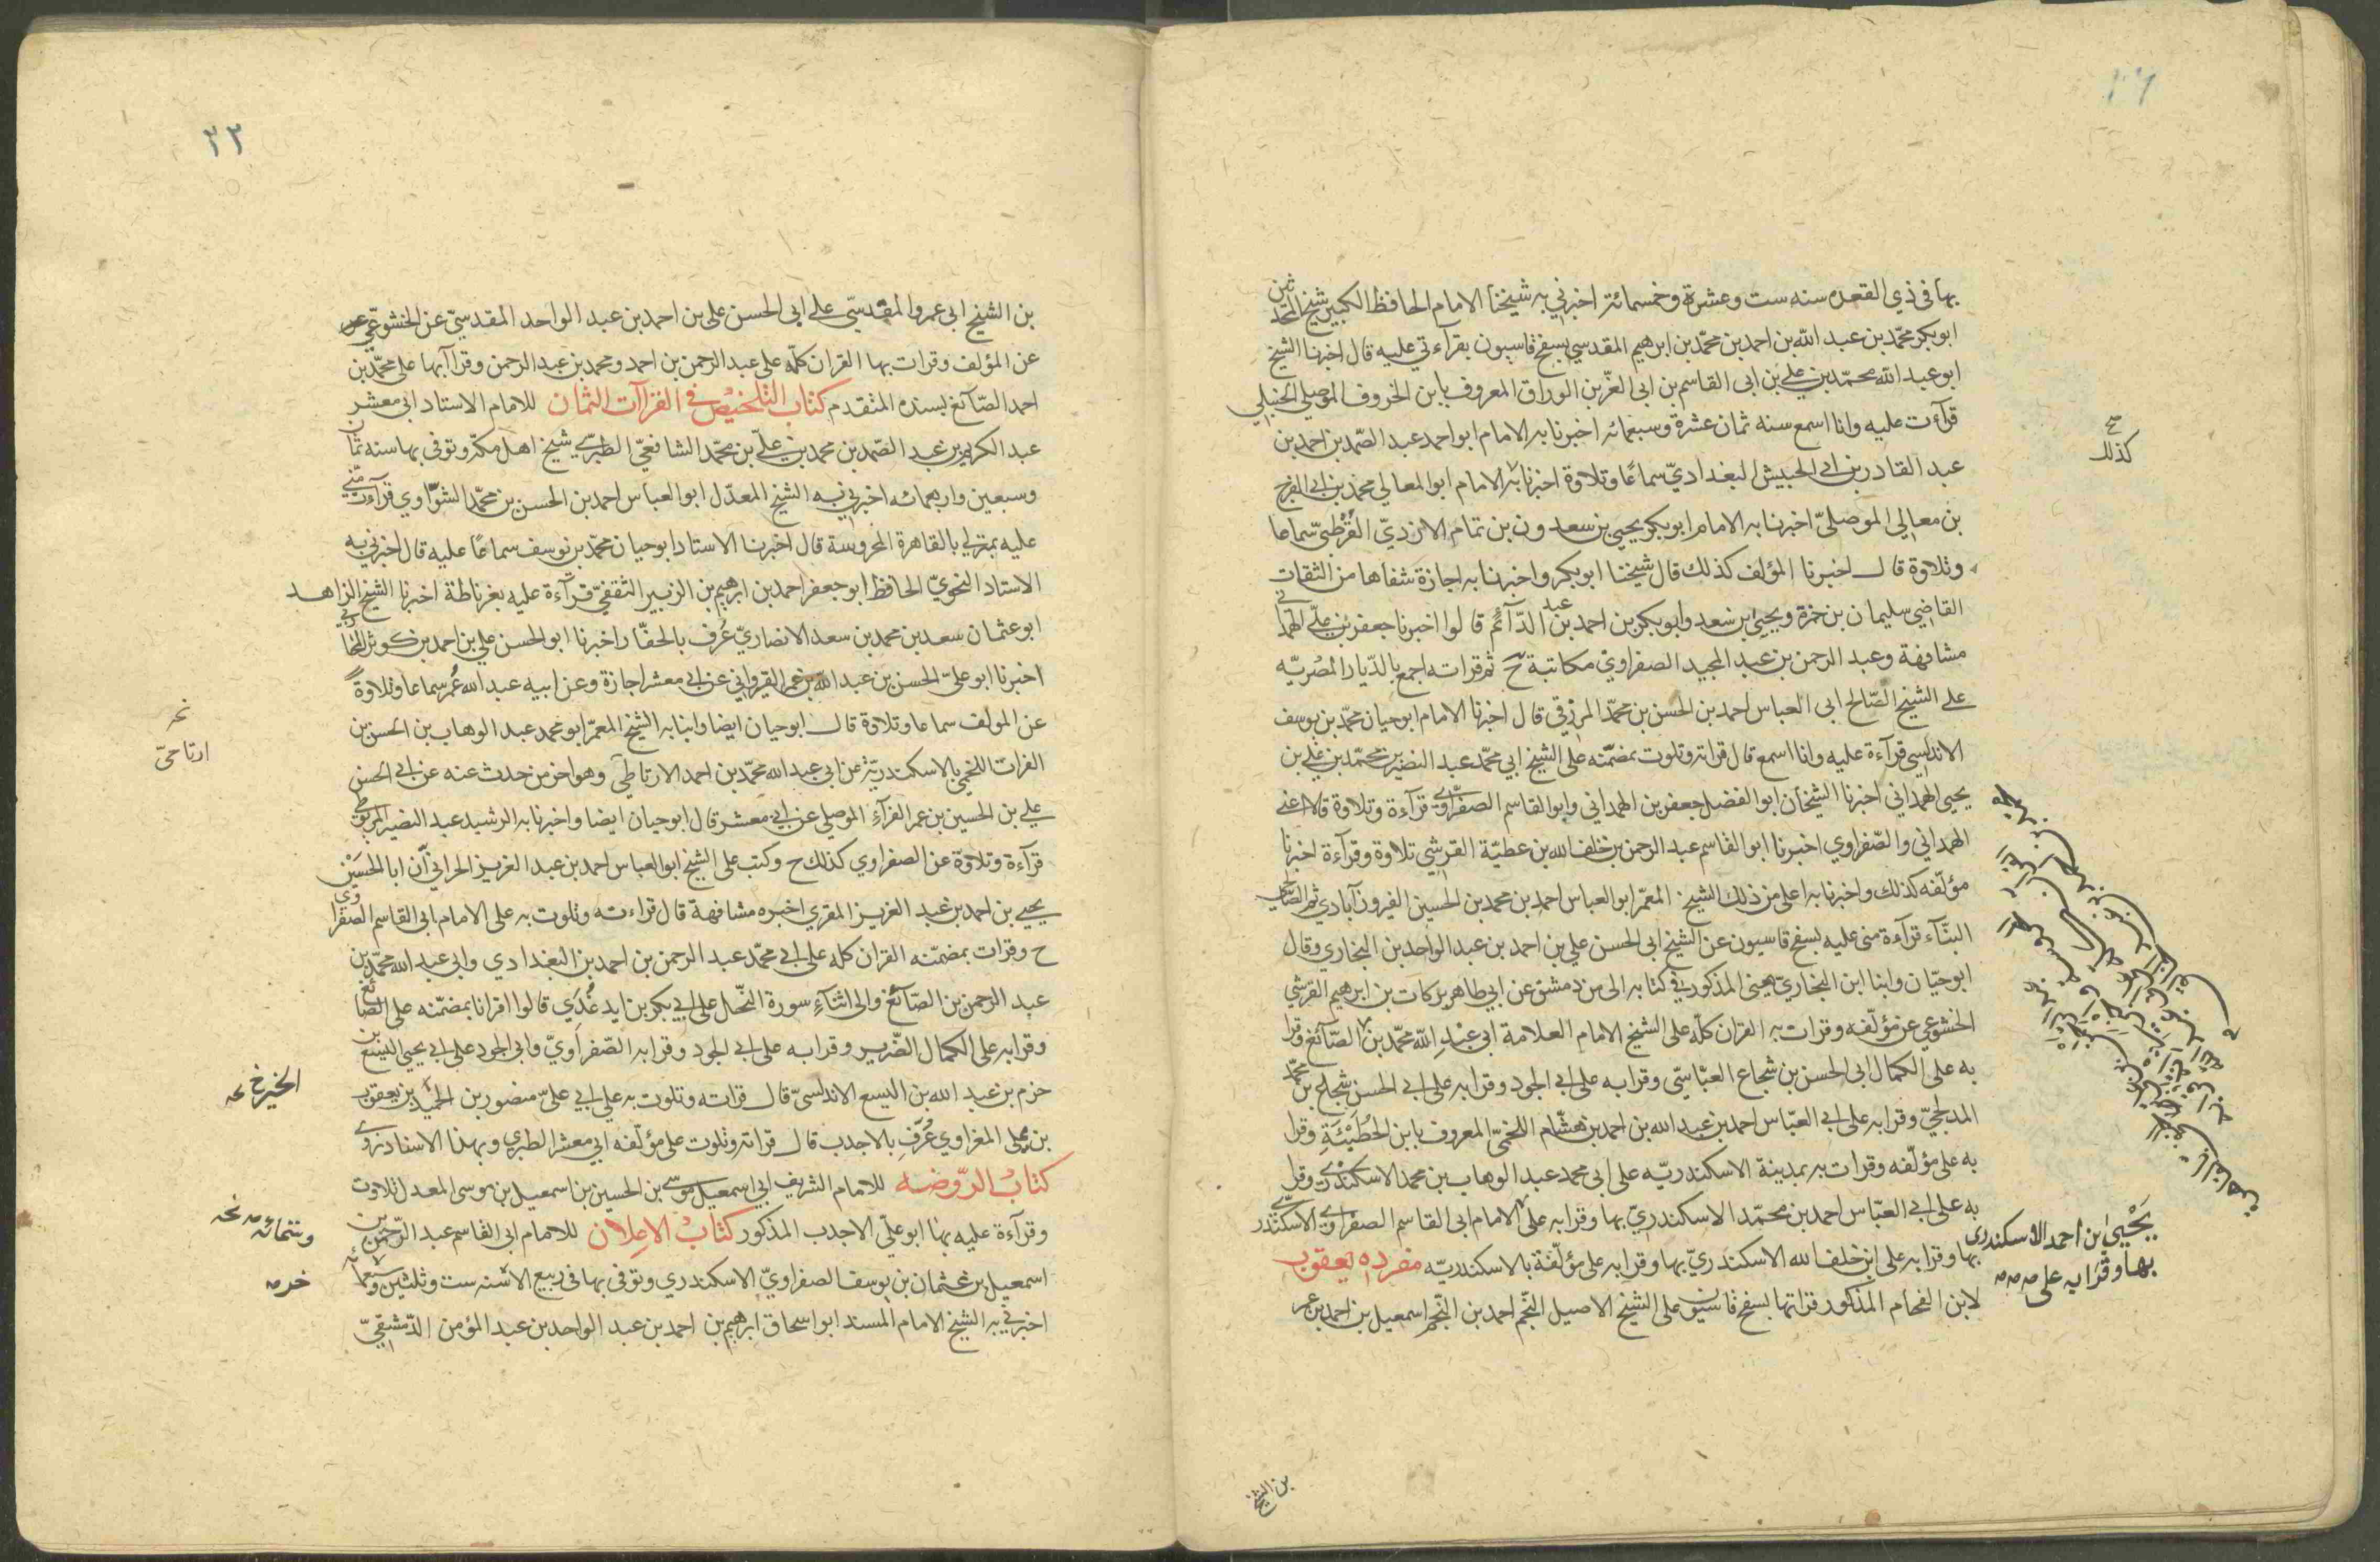 بها في ذي القعده سنه ست وعشرة وخمسمائة اخبرني به شيخنا الامام الحافظ الكبير شيخ المحدثين
ابو بكر محمّد بن عبد الله بن احمد بن محمّد بن ابرهيم المقدسي بسفح قاسيون بقرآءتي عليه قال اخبرنا الشيخ
ابو عبد الله محمّد بن علي بن ابي القاسم بن ابي العزّ بن الوراق المعروف بابن الخروف الموصلي الحنبلي
قرآءت عليه وانا اسمع سنه ثمان عشرة وسبعمائه اخبرنا به الامام ابو احمد عبد الصّمد بن احمد بن
كذلك
عبد القادر بن ابي الحبيش البغداديّ سماعًا وتلاوة اخبرنا به الامام ابو المعالي محمد بن ابي الفرج
بن معالي الموصليّ اخبرنا به الامام ابو بكر يحيي بن سعدون بن تمام الازديّ القُرْطبىّ سماعا
وتلاوة قال اخبرنا المؤلف كذلك قال شيخنا ابو بكر واخبرنا به اجازة شفاها من الثقات
القاضي سليمان بن حمزة ويحيى بن سعد وابو بكر بن احمد بن عبد الدّآئم قالوا اخبرنا جعفر بن علي الهمداني
مشافهة وعبد الرحمن بن عبد المجيد الصفراوي مكاتبة ح ثم قرات به اجمع بالدّيار المصْريّه
على الشيخ الصّالح ابي العباس احمد بن الحسن بن محمّد المرزقي قال اخبرنا الامام ابو حيان محمّد بن يوسف
الاندلسي قرآءة عليه وانا اسمع قال قراته وتلوت بمضمّنه على الشيخ ابي محمّد عبد النصير بن محمّد بن علي بن
يحيى الهمداني اخبرنا الشيخان ابو الفضل جعفر بن الهمداني وابو القاسم الصفراوي قرآءة وتلاوة قالا اعني
الهمداني والصّفراوي اخبرنا ابو القاسم عبد الرحمن بن خلف الله بن عطيّة القرشي تلاوة وقرآءة اخبرنا
مؤلّفه كذلك واخبرنا به اعلى من ذلك الشيخ المعمّر ابو العباس احمد بن محمد بن الحسين الفيروزآبادي ثم الصالحي
البنّآء قرآءة مني عليه بسفح قاسيون عن الشيخ ابي الحسن علي بن احمد بن عبد الواحد بن البخاري وقال
ابو حيّان وانبا ابن البخاريّ يعنى المذكور في كتابه الى من دمشق عن ابي طاهر بركات بن ابرهيم القرشي
الخشوعي عن مؤلّفه وقرات به القران كلّه على الشيخ الامام العلامة ابي عبْدِ الله محمّد بن الصّآئغ وقرا
به على الكمال ابي الحسن بن شجاع العبّاسّي وقرا به على ابي الجود وقرا به على ابي الحسن شجاع بن محمّد
المدلجيّ وقرا به على ابي العبّاس احمد بن عبد الله بن احمد بن هشّام اللخميّ المعروف بابن الحُطَيْئَةِ وقرا
به على مؤلّفه وقرات به بمدينة الاسكندريّه على ابي محمد عبد الوهاب بن محمد الاسكندري وقرا
به على ابي العبّاس احمد بن محمّد الاسكندريّ بها وقرا به على الامام ابي القاسم الصفراوي الاسكندري
يَحْيَى بن احمد الاسكندرى
بها وقرَا به على
بها وقرا به على ابن خلف الله الاسكندريّ بها وقرا به على مؤلّفة بالاسكندريّه مفرده يعقوب
لابن الفحام المذكور قراتها بسفح قاسيون على الشيخ الاصيل النّجم احمد بن النّجم اسمعيل بن احمد بن عمر
بن الشيخ
٢٣
بن الشيخ ابي عمر والمقدسّي على ابي الحسن على بن احمد بن عبد الواحد المقدسيّ عن الخشوعّي
عن المؤلف وقرات بها القران كلّه على عبد الرحمن بن احمد ومحمد بن عبد الرحمن وقراآ بها على محمّد بن
احمد الصّآئغ بسنده المتقدم كتاب التلخيصْ في القراآت الثمان للامام الاستاد ابي معشر
عبد الكريم بن عبد الصّمد بن محمد بن عليّ بن محمّد الشافعيّ الطبري شيخ اهل مكّة وتوفي بها سنه ثمان
وسبعين واربعمائه اخبرني به الشيخ المعدّل ابو العباس احمد بن الحسن بن محمّد الشوّاوي قرآءة منّي
عليه بمنزلي بالقاهرة المحروسة قال اخبرنا الاستاد ابو حيان محمّد بن يوسف سماعًا عليه قال اخبرني به
الاستاد النحويّ الحافظ ابو جعفر احمد بن ابرهيم بن الزبير الثقفيّ قرآءة عليه بغرناطة اخبرنا الشيخ الزاهد
ابو عثمان سعد بن محمد بن سعد الانصاريّ عُرف بالحفّار اخبرنا ابو الحسن علي بن احمد بن كوثر المحاربي
اخبرنا ابو عليّ الحسن بن عبد الله بن عمر القيرواني عن ابي معشر اجازة وعن ابيه عبد الله عُمر سماعا وتلاوةً
عن المولف سماعا وتلاوة قال ابو حيان ايضا وانبا به الشيخ المعمّر ابو محمد عبد الوهاب بن الحسن بن
الفرات اللخمي بالاسكندريّة عن ابي عبد الله محمّد بن احمد الارتاطي وهو اخر من حدث عنه عن ابي الحسن
ارتاحيّ
علي بن الحسين بن عمر الفرآء الموصلي عن ابي معشر قال ابو حيان ايضا واخبرنا به الرشيد عبد النصير المربوطي
قرآءة وتلاوة عن الصفراوي كذلك ح وكتب على الشيخ ابو العباس احمد بن عبد العزيز الحراني أن ابا الحسَيْن
يحيي بن احمد بن عبد العزيز المقري اخبره مشافهة قال قراءته وتلوت به على الامام ابي القاسم الصفراوي
ح وقرات بمضمّنه القران كله على ابي محمّد عبد الرحمن بن احمد بن البغدادي وابي عبد الله محمّد بن
عبد الرحمن بن الصّآئغ والى اثنآء سورة النّحل على ابي بكر بن ايد غُدَي قالوا اقرانا بمضمّنه على الصّائغ
وقرا به على الكمال الضّرير وقرا به على ابي الجود وقرا به الصّفراويّ وابي الجود على ابي يحيى اليسع بن
حزم بن عبد الله بن اليسع الاندلسىّ قال قراته وتلوت به على ابي عليّ منصور بن الحميد بن يعقوب
الخير خ
بن محلى المغراوي عُرّفِ بالاجدب قال قراته وتلوت على مؤلّفه ابي معشر الطبري وبهذا الاسناد نروي
كتابُ الروّضه للامام الشريف ابي اسمعيل موسى بن الحسين بن اسمعيل بن موسى المعدل تلاوة
وقرآءة عليه بها ابو عليّ الاجدب المذكور كتابُ الاعلان للامام ابي القاسم عبد الرّحمن بن
وستمائه
اسمعيل بن عثمان بن يوسف الصفراويّ الاسكندري وتوفي بها في ربيع الاخر سنه ست وثلثين وسبعمائه
اخبرني به الشيخ الامام المسند ابو اسحاق ابرهيم بن احمد بن عبد الواحد بن عبد المؤمن الدّمشقيّ